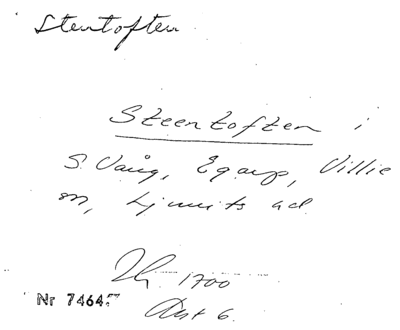 Stentoften
Steentoften i
S. Vång, Egarp, Villie
sn, Ljunits hd
1700
Nr 7464
Akt 6.